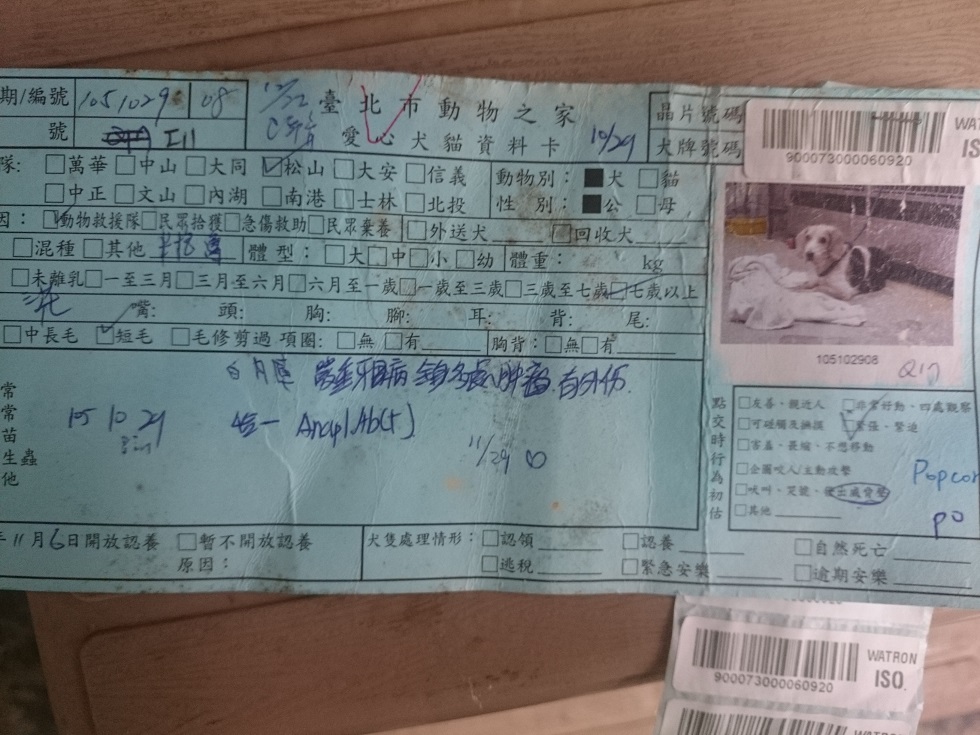 期/編號 1051029 08 12/22 臺北市動物之家 晶片號碼
號 I11 愛心犬貓資料卡 10/29 犬牌號碼
900073000060920
WAT
IS
隊: □萬華□中山□大同☑松山□大安□信義 動物別:■犬 □貓
□中正□文山□內湖□南港□士林□北投 性 別:■公 □母
因:☑動物救援隊□民眾拾獲□急傷救助□民眾棄養□外送犬 □回收犬
□混種 □其他 體型:□大□中□小□幼 體重: kg
□未離乳□一至三月□三月至六月□六月至一歲□一歲至三歲□三歲至七歲☑七歲以上
嘴: 頭: 胸: 腳: 耳: 背: 尾:
□中長毛 ☑短毛 □毛修剪過 項圈:□無 □有 胸背:□無□有
105102908
常
常
苗
生蟲
他
105 10 29
Anapl Ab(+)
11/29
點交時行為初估
□友善、親近人 □非常好動、四處觀察
□可碰觸及撫摸 ☑緊張、緊迫
□害羞、畏縮、不想移動
□企圖咬人/主動攻擊
□吠叫、哭號、發出威脅聲
□其他
Popcor
po
年11月6日開放認養 □暫不開放認養
原因:
犬隻處理情形:□認領 □認養 □自然死亡
□逃脫 □緊急安樂 □逾期安樂
WATRON
ISO.
900073000060920
WATRON